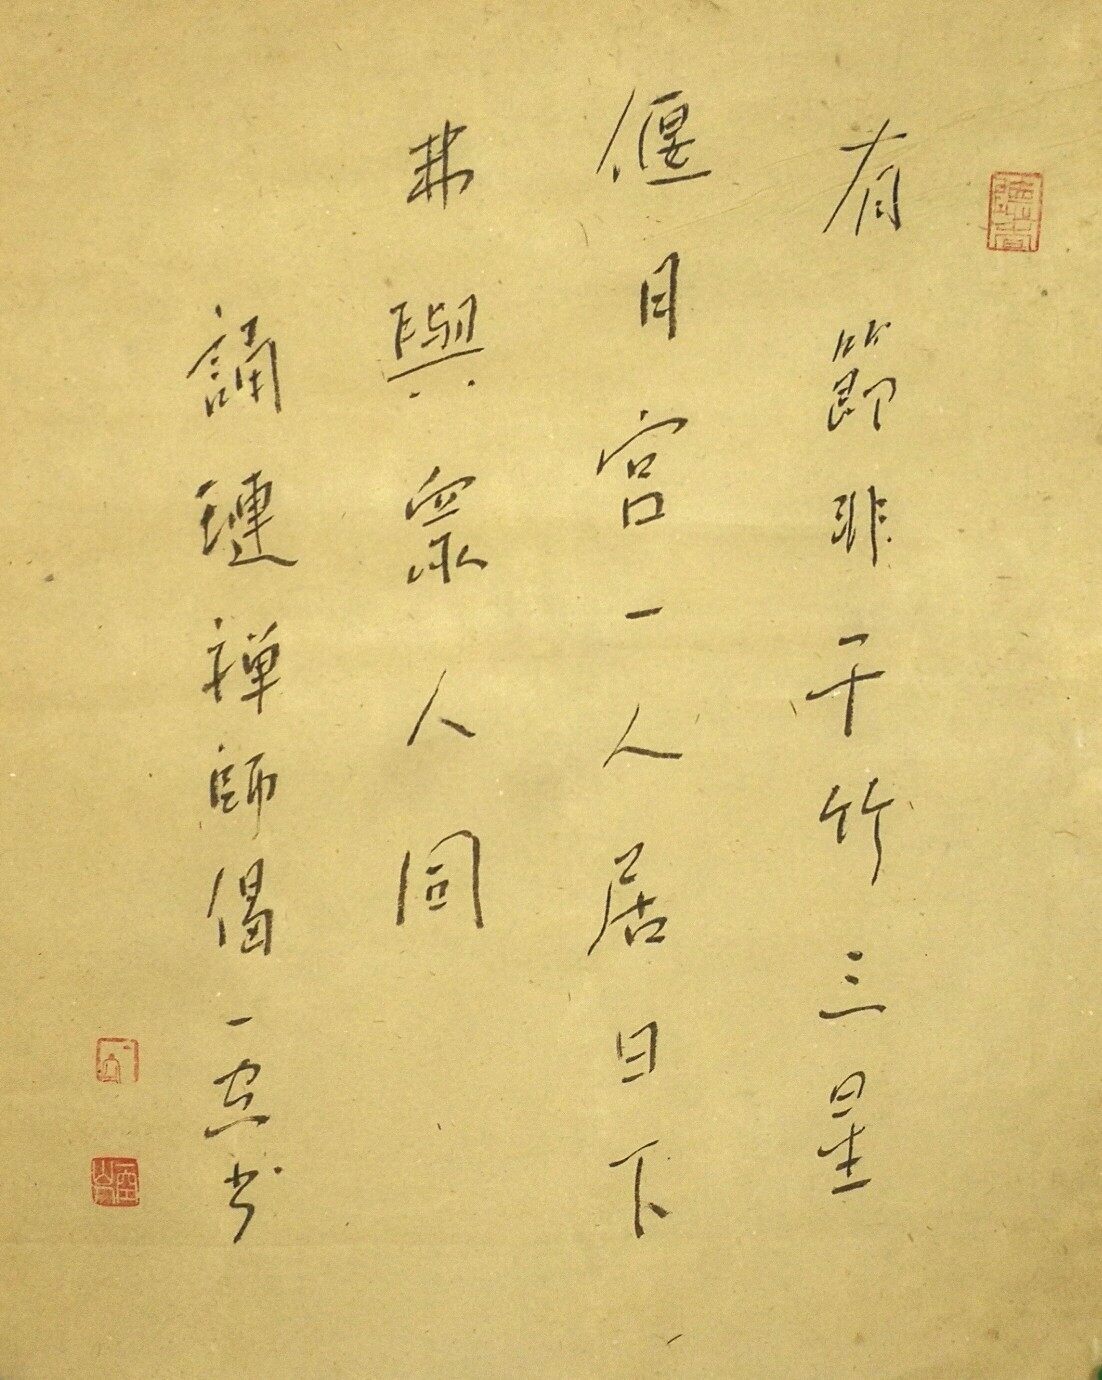 有節非干竹三星
偃月宮一人居日下
弗與眾人同
誦璉禪師偈一空书